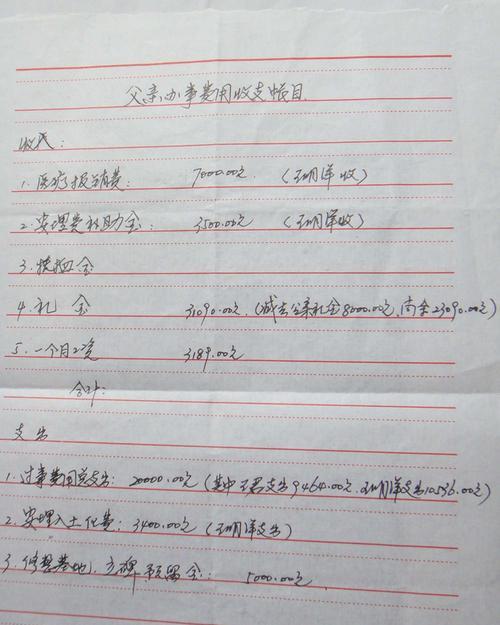 父亲办事费用收支帐目
收入:
1.医疗报销费: 7000.00元. (王明洋收)
2.安埋费补助金: 3500.00元 (王明洋收)
3.抚恤金
4.礼金 31090.00元.(减去公亲礼金8000.00元,尚余23090.00元)
5.一个月工资 3189.00元
合计:
支出
1.过事费用总支出: 20000.00元(其中王君支出9464.00元,王明洋支出10536.00元)
2.安埋入土化费: 3400.00元(王明洋支出)
3.修整墓地,立碑预留金: 5000.00元